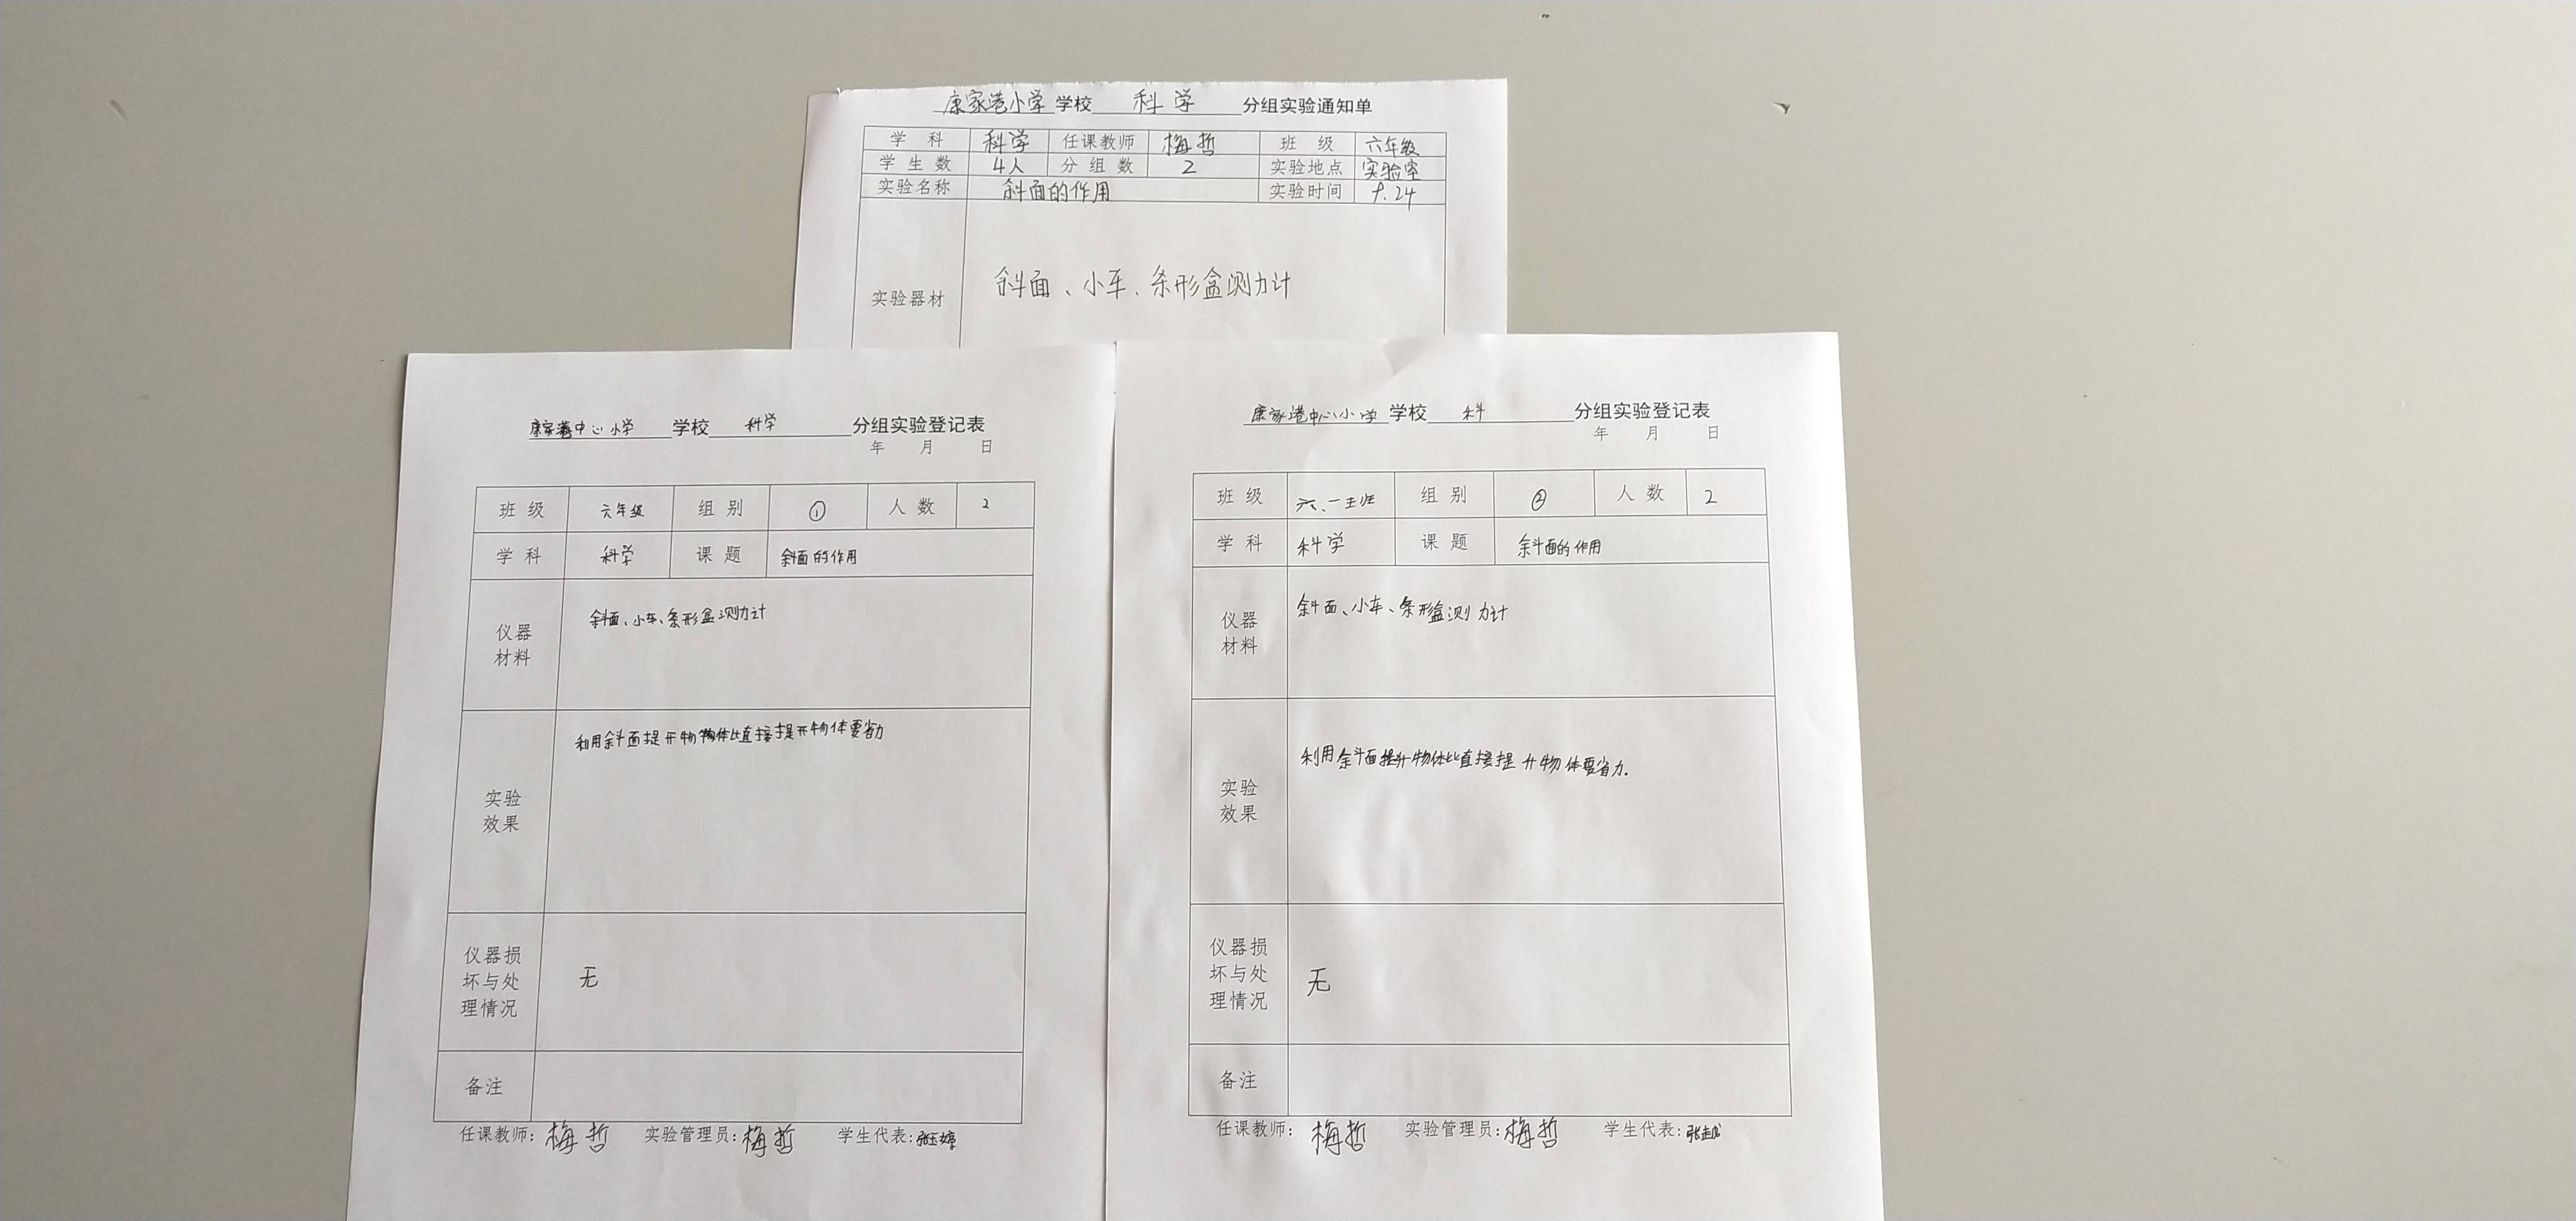 康家港小学 学校 科学 分组实验通知单
学 科 科学 任课教师 梅哲 班 级 六年级
学 生 数 4人 分 组 数 2 实验地点 实验室
实验名称 斜面的作用 实验时间 9.24
实验器材 斜面、小车、条形盒测力计
康家港中心小学 学校 科学 分组实验登记表
年 月 日
班 级 六年级 组 别 ① 人 数 2
学 科 科学 课 题 斜面的作用
仪器
材料
斜面、小车、条形盒测力计
实验
效果
利用斜面提升物物体比直接提升物体要省力
仪器损
坏与处
理情况
无
备注
任课教师: 梅哲 实验管理员: 梅哲 学生代表:
康家港中心小学 学校 科 分组实验登记表
年 月 日
班 级 组 别 ② 人 数 2
学 科 科学 课 题 斜面的作用
仪器
材料
斜面、小车、条形盒测力计
实验
效果
利用斜面提升物体比直接提升物体要省力.
仪器损
坏与处
理情况
无
备注
任课教师: 梅哲 实验管理员: 梅哲 学生代表: